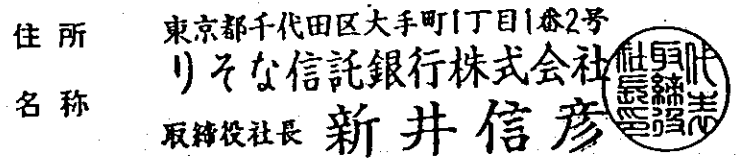 住所 東京都千代田区大手町1丁目1番2号
名称 りそな信託銀行株式会社
取締役社長 新井信彦
代表取締役社長印